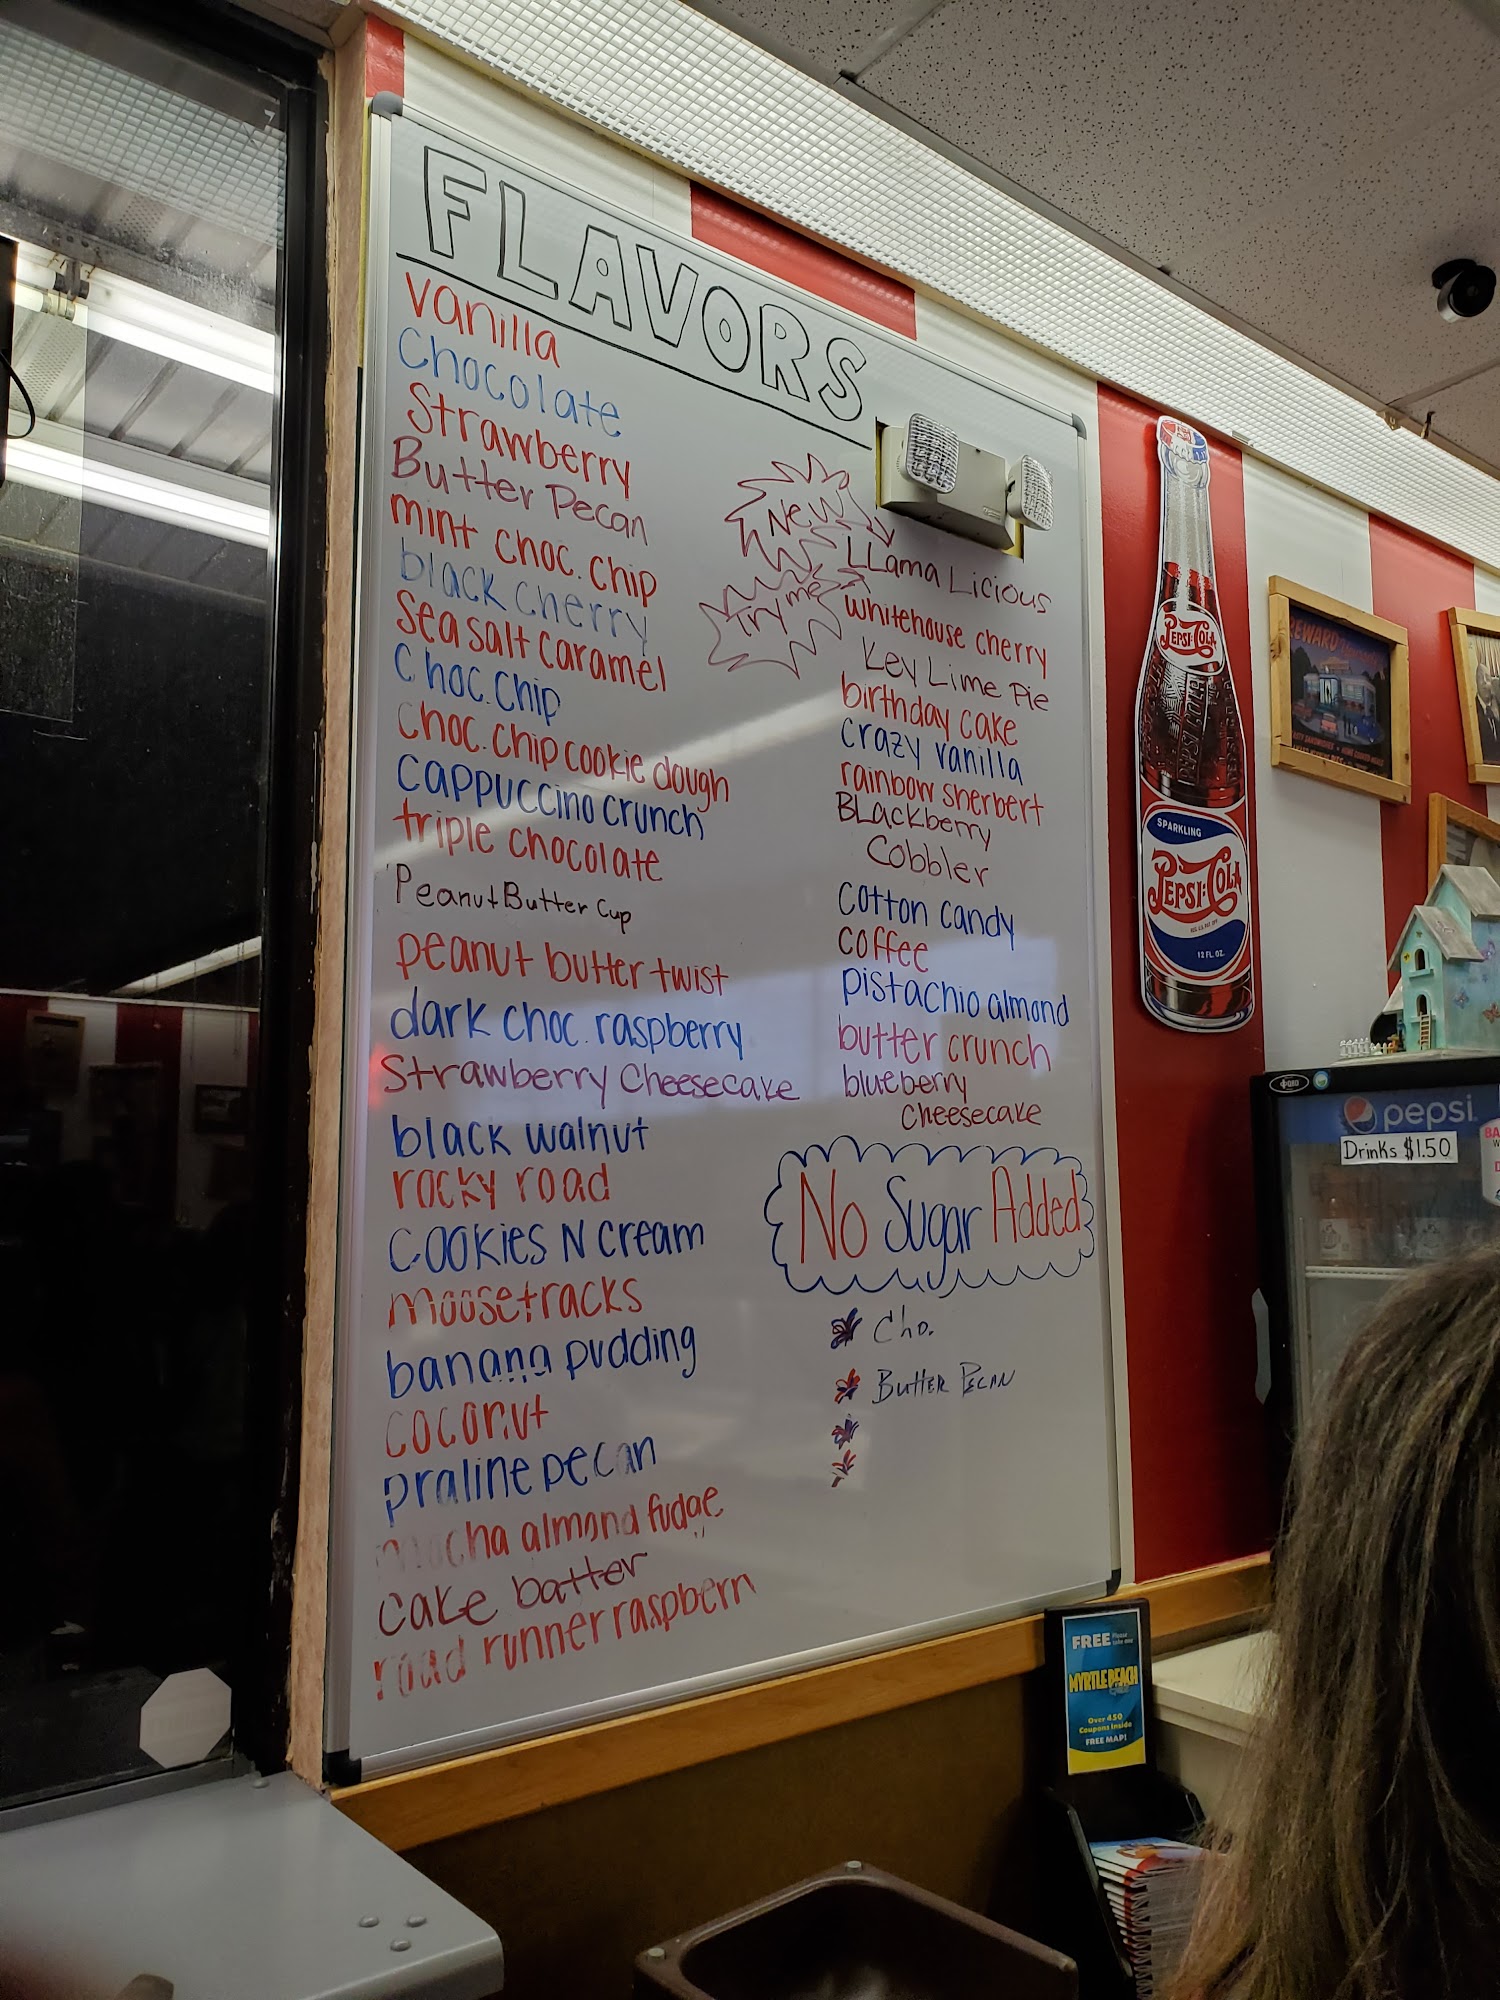 FLAVORS
vanilla
Chocolate
Strawberry
Butter Pecan
mint choc. chip
black cherry
sea salt caramel
Choc. Chip
choc. chip cookie dough
cappuccino crunch
triple chocolate
Peanut Butter Cup
peanut butter twist
dark choc. raspberry
Strawberry Cheesecake
black walnut
rocky road
cookies N cream
moosetracks
banana pudding
coconut
praline pecan
mocha almond fudge
cake batter
road runner raspberry
New
Try me
LLama Licious
whitehouse cherry
Key Lime Pie
birthday cake
crazy vanilla
rainbow sherbert
BLackberry
Cobbler
cotton candy
coffee
pistachio almond
butter crunch
blueberry
Cheesecake
No Sugar Added
Cho.
Butter Pecan
PEPSI:COLA
SPARKLING
PEPSI:COLA
12 FL. OZ.
pepsi
Drinks $1.50
FREE Please take one
MYRTLE BEACH
Over 450
Coupons Inside
FREE MAP!